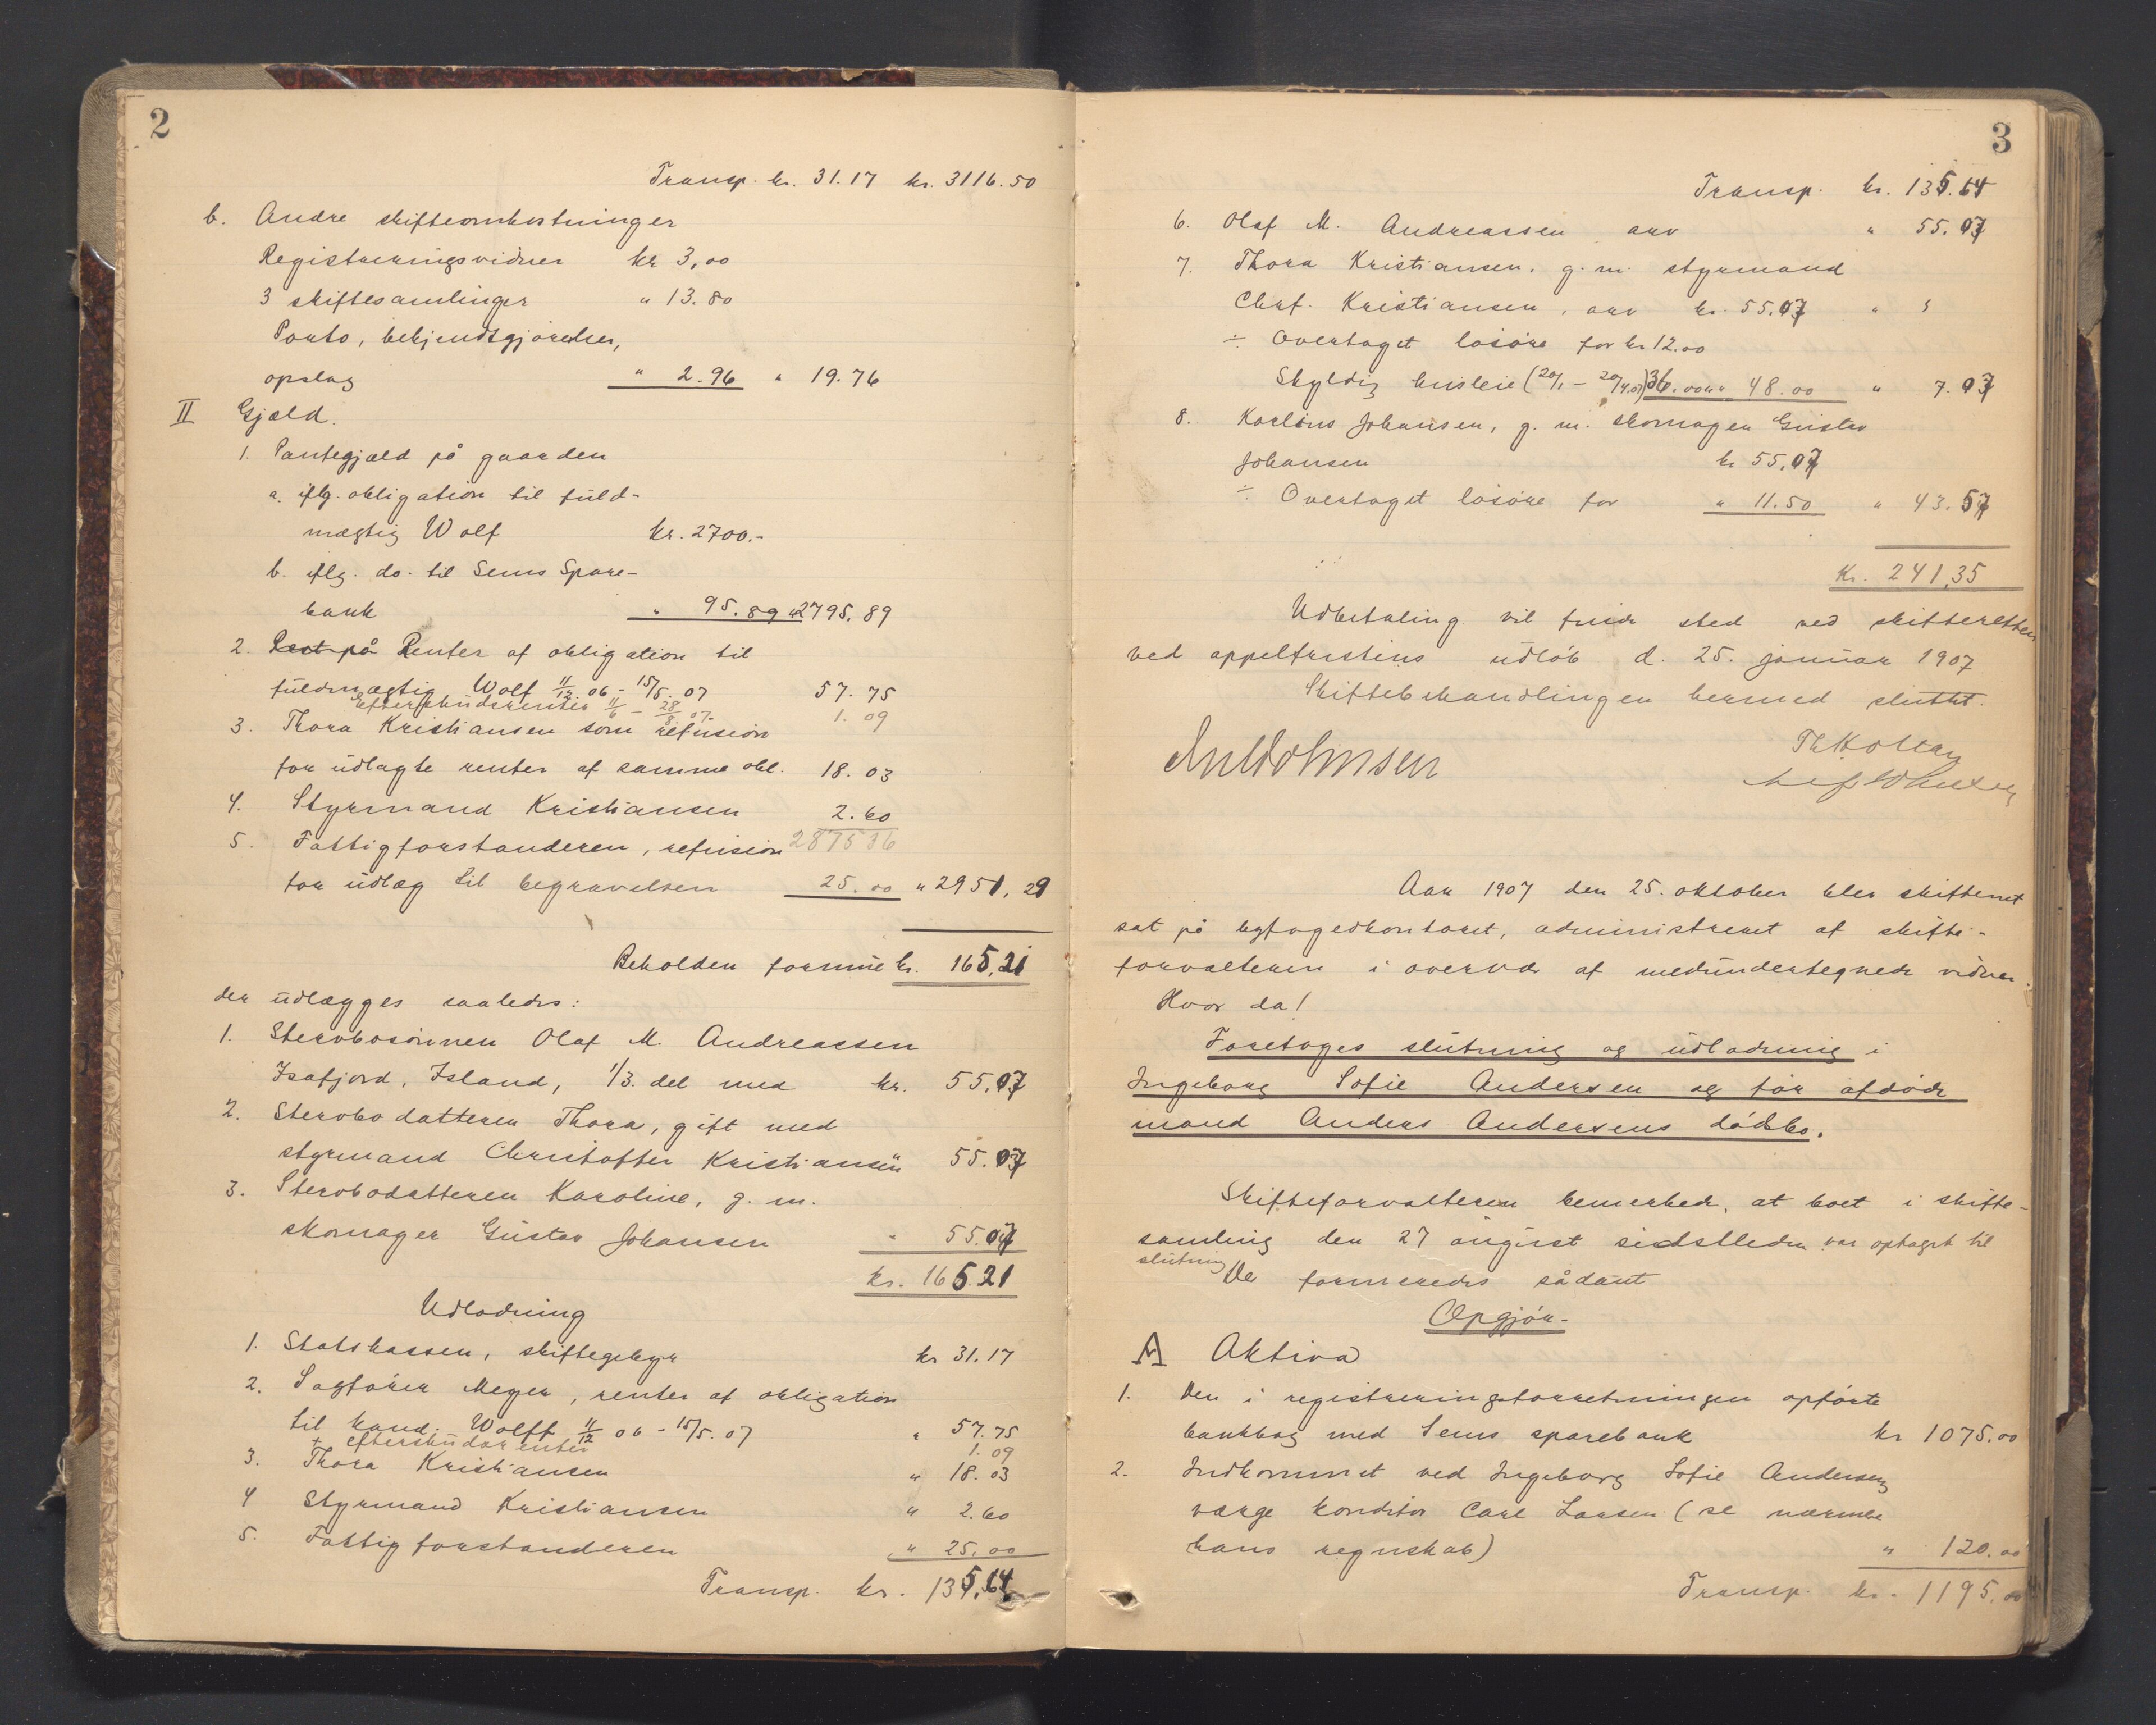 2
Transp. kr. 31.17 kr. 3116.50
b. Andre skifteomkostninger
Registreringsvidner kr 3,00
3 skiftesamlinger " 13.80
Porto, bekjendtgjørelser,
opslag " 2.96 " 19.76
II Gjæld.
1. Pantegjæld på gaarden
a. iflg. obligation til fuld-
mægtig Wolf kr. 2700.-
b. iflg. do. til Sems Spare-
bank " 95.89 " 2795.89
2. Rest på Renter af obligation til
fuldmægtig Wolf 11/12 06 - 15/5. 07 57.75
efterskudsrenter 11/6 - 28/8. 07. 1.09
3. Thora Kristiansen som refusion
for udlagte renter af samme obl. 18.03
4. Styrmand Kristiansen 2.60
5. Fattigforstanderen, refusion 2875 36
for udlæg til begravelsen 25.00 " 2951,29
Beholden formue kr. 165,21
der udlægges saaledes:
1. Stervbosønnen Olaf M. Andreassen
Isafjord, Island, 1/3. del med kr. 55,07
2. Stervbodatteren Thora, gift med
styrmand Christoffer Kristiansen 55.07
3. Stervbodatteren Karoline, g. m.
skomager Gustav Johansen " 55.07
kr. 165.21
Udlodning
1. Statskassen, skiftegebyr kr 31.17
2. Sagfører Meyer, renter af obligation
til kand. Wolff 11/12 06 - 15/5. 07 " 57.75
+ efterskudsrenter 1.09
3. Thora Kristiansen " 18.03
4 Styrmand Kristiansen " 2.60
5. Fattigforstanderen " 25.00
Transp. kr. 135,64
3
Transp. kr. 135.64
6. Olaf M. Andreassen arv " 55.07
7. Thora Kristiansen, g. m. styrmand
Chrf. Kristiansen, arv kr. 55.07 "
÷ Overtaget løsøre for kr 12.00
Skyldig husleie (20/1 - 20/4.07) 36.00 " 48.00 " 7.07
8. Karline Johansen, g. m. skomager Gustav
Johansen kr 55,07
÷ Overtaget løsøre for " 11.50 " 43.57
Kr. 241,35
Udbetaling vil finde sted ved skifteretten
ved appelfristens udløb d. 25. januar 1907
Skiftebehandlingen hermed sluttet.
Aar 1907 den 25. oktober blev skifteret
sat på byfogedkontoret, administreret af skifte-
forvalteren i overvær af medundertegnede vidner.
Hvor da!
Foretoges slutning og udlodning i
Ingeborg Sofie Andersen og før afdøde
mand Anders Andersens dødsbo.
Skifteforvalteren bemerkede, at boet i skifte-
samling den 27 august sidstleden var optaget til
slutning De formeredes sådant
Opgjør-
A Aktiva
1. Den i registreringsforretningen opførte
bankbog med Sems sparebank kr 1075.00
2. Indkommet ved Ingeborg Sofie Andersens
værge konditor Carl Larsen (se nærmere
hans regnskab) " 120.00
Transp. kr. 1195.00